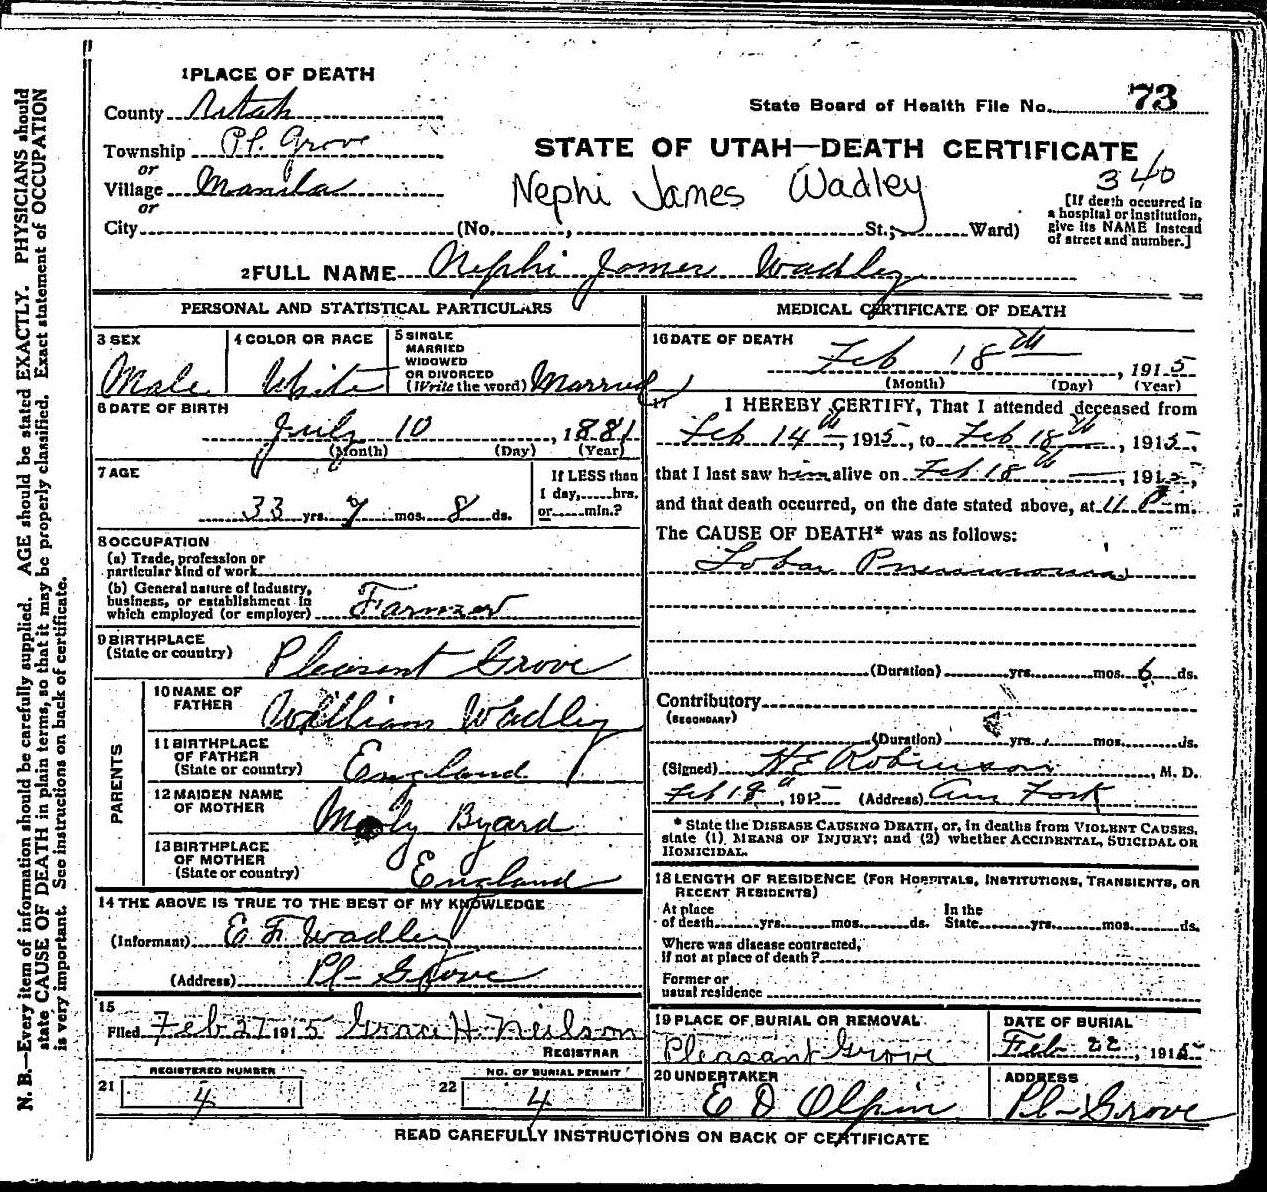 1 PLACE OF DEATH
County Utah
Township Pl. Grove
or
Village Manila
or
City
State Board of Health File No. 73
STATE OF UTAH—DEATH CERTIFICATE
340
Nephi James Wadley
[If death occurred in
a hospital or institution,
give its NAME instead
of street and number.]
(No. , St.; Ward)
2 FULL NAME Nephi James Wadley
PERSONAL AND STATISTICAL PARTICULARS
3 SEX
Male
4 COLOR OR RACE
White
5 SINGLE
MARRIED
WIDOWED
OR DIVORCED
(Write the word) Married
6 DATE OF BIRTH
July 10, 1881
(Month) (Day) (Year)
7 AGE
33 yrs. 7 mos. 8 ds.
If LESS than
1 day, hrs.
or min.?
8 OCCUPATION
(a) Trade, profession or
particular kind of work
(b) General nature of industry,
business, or establishment in
which employed (or employer) Farmer
9 BIRTHPLACE
(State or country) Pleasant Grove
PARENTS
10 NAME OF
FATHER William Wadley
11 BIRTHPLACE
OF FATHER
(State or country) England
12 MAIDEN NAME
OF MOTHER Byard
13 BIRTHPLACE
OF MOTHER
(State or country) England
14 THE ABOVE IS TRUE TO THE BEST OF MY KNOWLEDGE
(Informant) E F Wadley
(Address) Pl- Grove
15
Filed Feb 27 1915 Grace H. Neilson
REGISTRAR
21 REGISTERED NUMBER
4
22 NO. OF BURIAL PERMIT
4
MEDICAL CERTIFICATE OF DEATH
16 DATE OF DEATH
Feb 18th, 1915
(Month) (Day) (Year)
17 I HEREBY CERTIFY, That I attended deceased from
Feb 14th, 1915, to Feb 18th, 1915,
that I last saw him alive on Feb 18th, 1915,
and that death occurred, on the date stated above, at 11 P m.
The CAUSE OF DEATH* was as follows:
Lobar Pneumonia
(Duration) yrs. mos. 6 ds.
Contributory
(SECONDARY)
(Duration) yrs. mos. ds.
(Signed) H E Robinson, M. D.
Feb 19, 1915 (Address) Am Fork
* State the DISEASE CAUSING DEATH, or, in deaths from VIOLENT CAUSES,
state (1) MEANS OF INJURY; and (2) whether ACCIDENTAL, SUICIDAL OR
HOMICIDAL.
18 LENGTH OF RESIDENCE (FOR HOSPITALS, INSTITUTIONS, TRANSIENTS, OR
RECENT RESIDENTS)
At place
of death yrs. mos. ds. In the
State yrs. mos. ds.
Where was disease contracted,
if not at place of death?
Former or
usual residence
19 PLACE OF BURIAL OR REMOVAL
Pleasant Grove
DATE OF BURIAL
Feb 22, 1915
20 UNDERTAKER
E D Olpin
ADDRESS
Pl- Grove
READ CAREFULLY INSTRUCTIONS ON BACK OF CERTIFICATE
N. B.—Every item of information should be carefully supplied. AGE should be stated EXACTLY. PHYSICIANS should
state CAUSE OF DEATH in plain terms, so that it may be properly classified. Exact statement of OCCUPATION
is very important. See instructions on back of certificate.